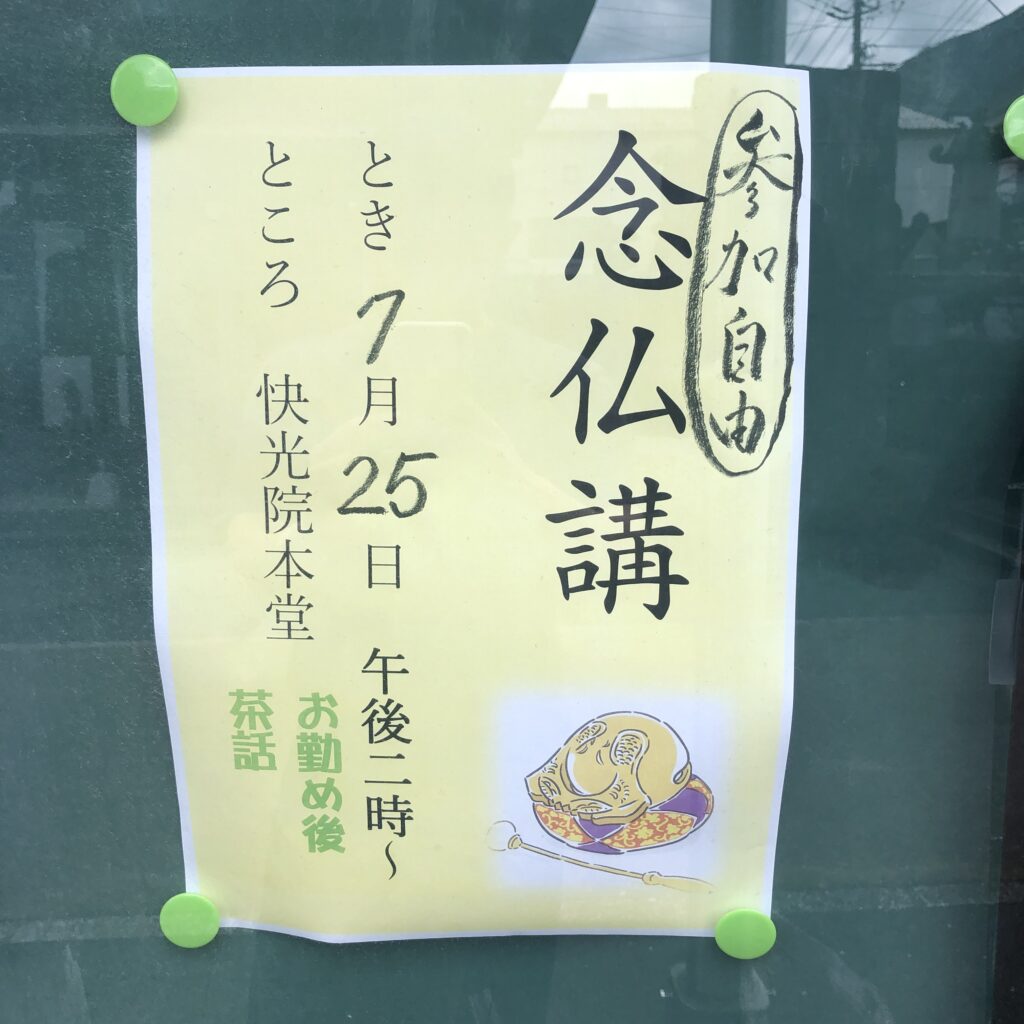 参加自由
念仏講
とき 7月25日 午後二時～
ところ 快光院本堂
お勤め後
茶話